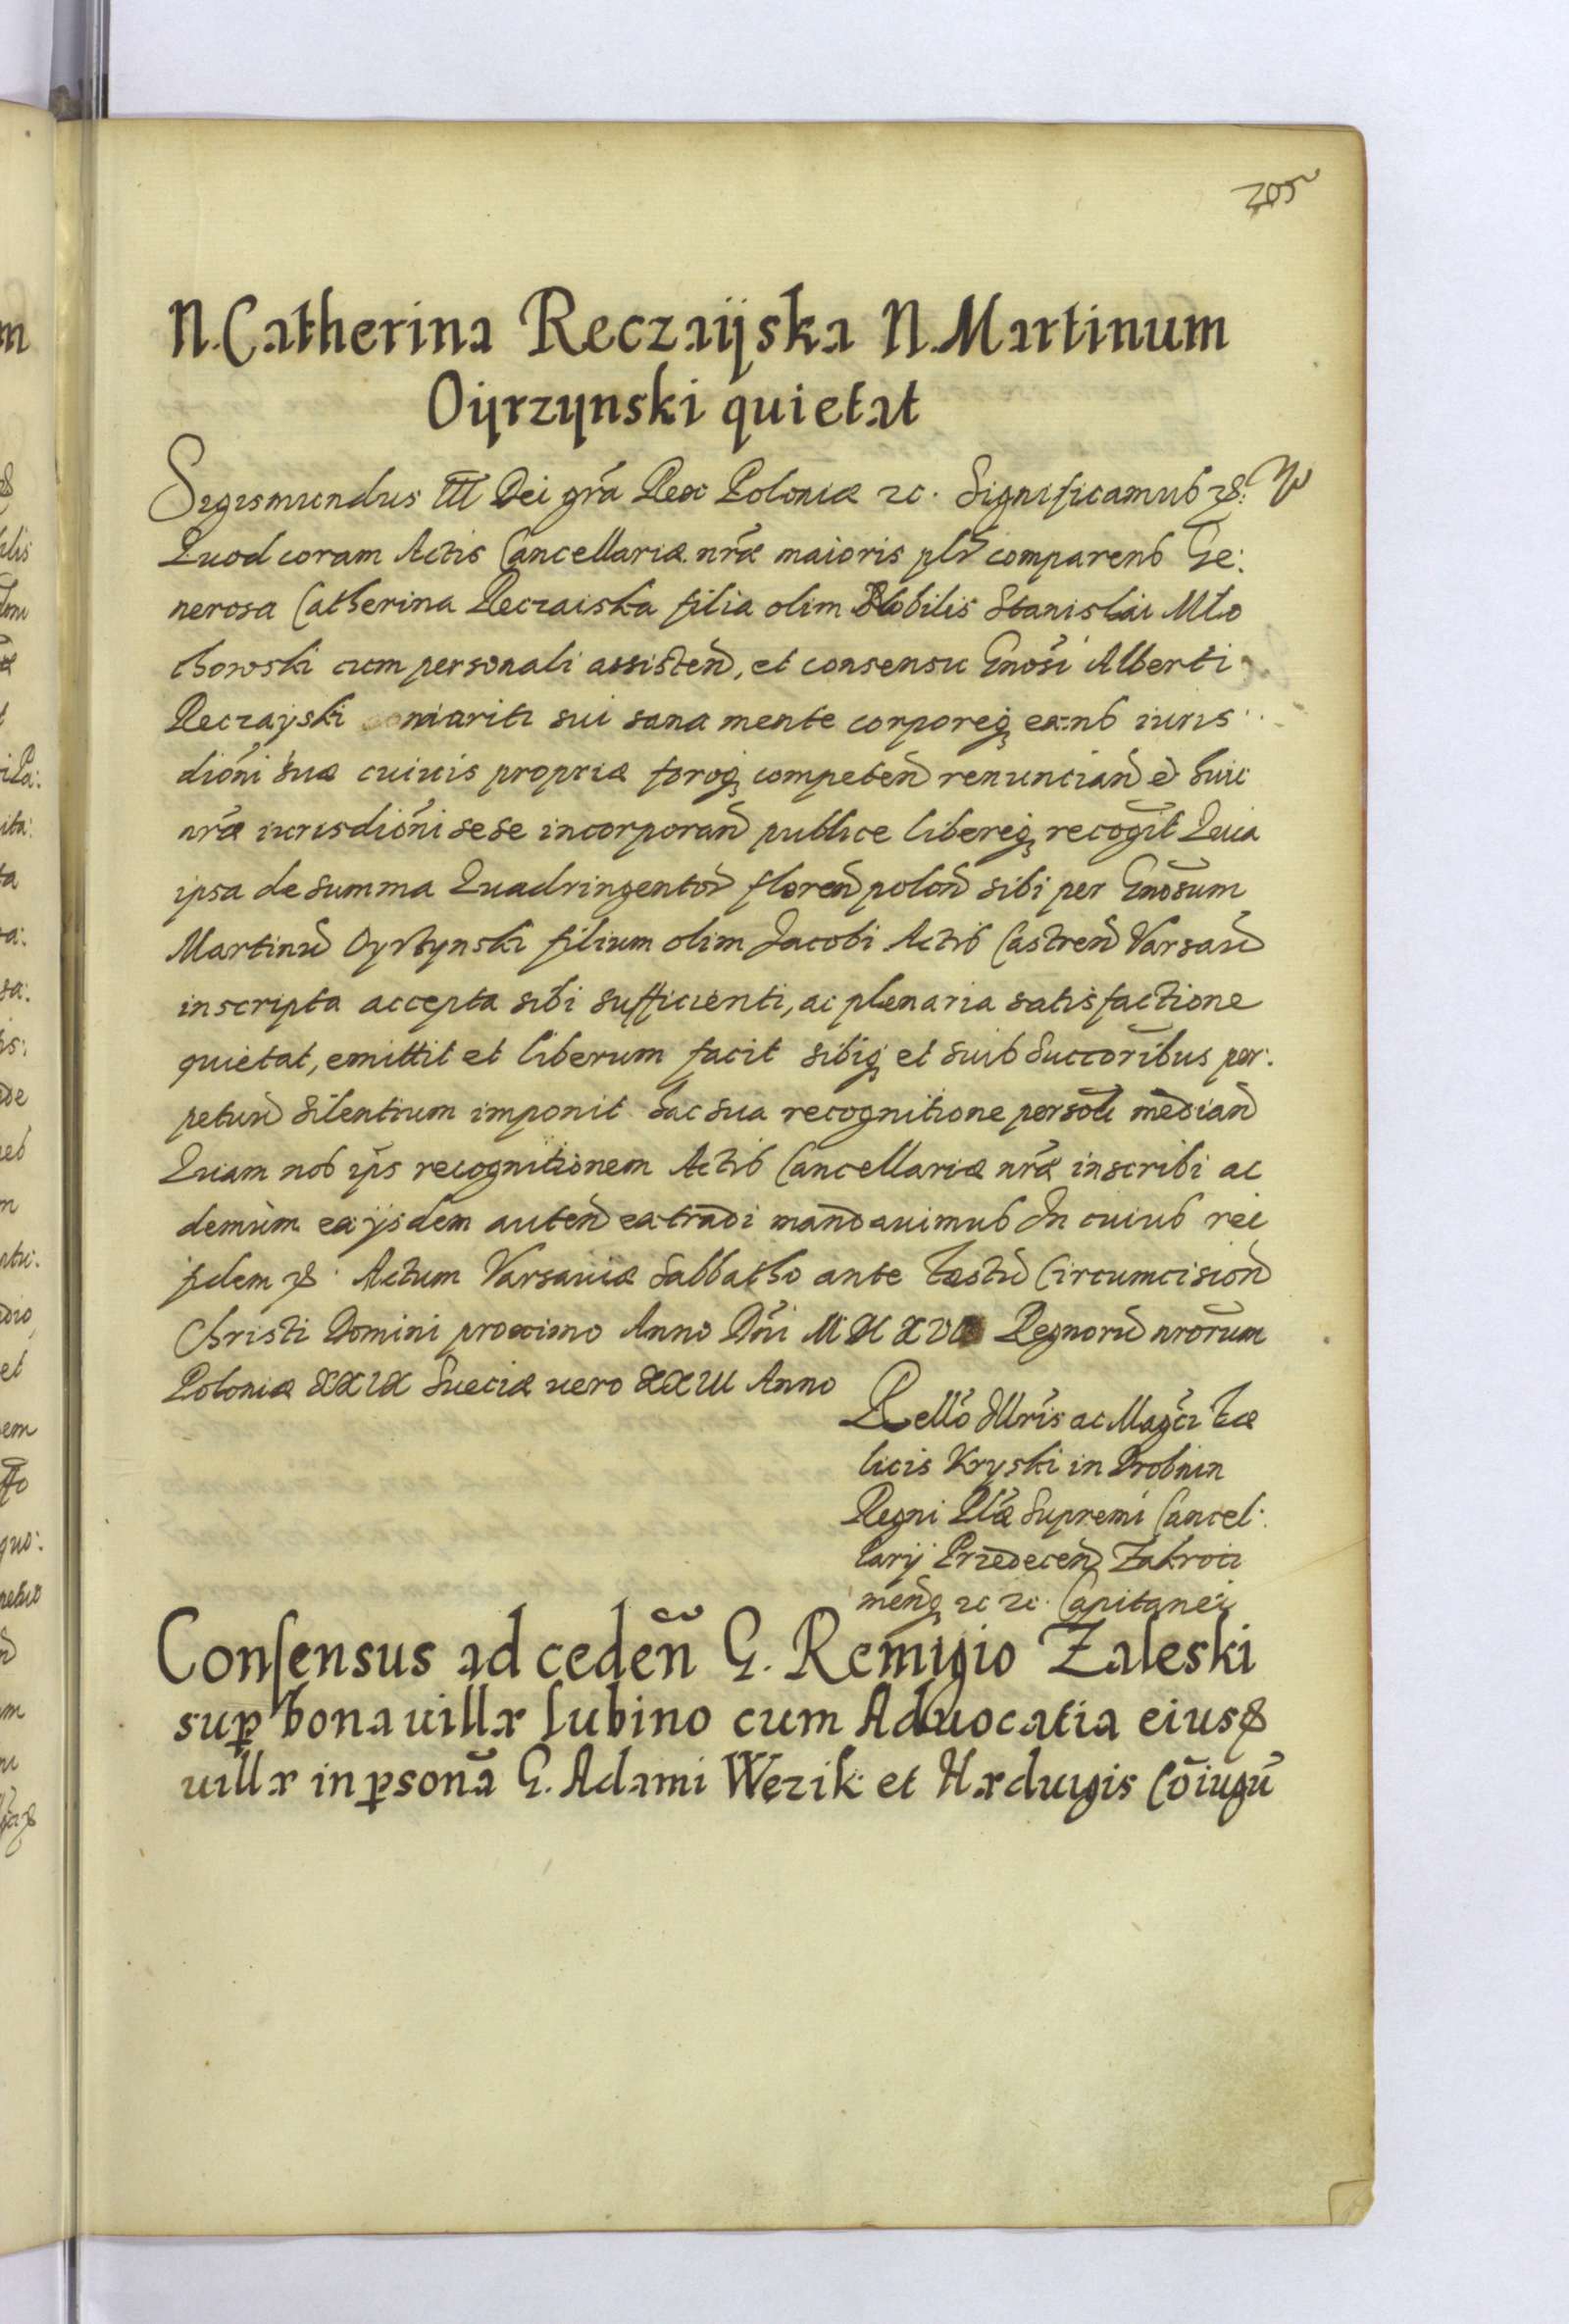 205
N. Catherina Reczaijska N. Martinum
Oijrzynski quietat
Sigismundus III Dei gra̅ Rex Poloniæ ꝛc. Significamus ꝛc.
Quod coram Actis Cancellariæ nr̅æ maioris plr̅ comparens Ge:
nerosa Catherina Reczaiska filia olim Nobilis Stanislai Mło
chowski cum personali assisten̅, et consensu Gnosi̅ Alberti
Reczayski mariti sui sana mente corporeq̨ exns iuris
dioni̅ suæ cuiuis propriæ foroq̨ competen̅ renuncian̅ et huic
nr̅æ iurisdioni̅ sese incorporan̅ publice libereq̨ recog̅it Quia
ipsa de summa Quadringentor̅ floren̅ polon̅ sibi per Gnosum̅
Martinu̅ Oyrzynski filium olim Jacobi Actis Castren̅ Varsau̅
inscripta accepta sibi sufficienti, ac plenaria satisfactione
quietat, emittit et liberum facit sibiq̨ et suis succorib̅us per:
petuu̅ silentium imponit hac sua recognitione persol̅i median̅
Quam nos ip̅s recognitionem Actis Cancellariæ nr̅æ inscribi ac
demum ex ijsdem auten̅ extradi mandauimus In cuius rei
fidem ꝛc. Actum Varsauiæ Sabbatho ante Festu̅ Circumcision̅
Christi Domini proximo Anno Dni̅ Regnoru̅ nror̅um
Poloniæ XXIX Sueciæ uero XXIII Anno
Rello̅ Illris̅ ac Magci̅ Fæ
licis Kryski in Drobnin
Regni Pl̅æ Supremi Cancel:
larij Przedecen̅ Zakroci
menq̨ ꝛc ꝛc. Capitanei
Consensus ad ceden̅ G. Remigio Zaleski
suꝑ bona uillæ Lubino cum Aduocatia eiusꝺ
uillæ in ꝑsona̅ G. Adami Węzik et Hæduigis Co̅iugu̅